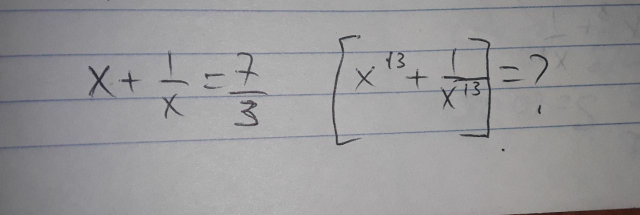 x + 1/x = 7/3 [x^13 + 1/x^13] = ?